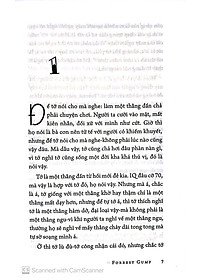 1
Để tớ nói cho mà nghe: làm một thằng đần chả
phải chuyện chơi. Người ta cười vào mũi, mất
kiên nhẫn, đối xử với mình như cứt. Giờ thì
họ nói là bà con nên tử tế với người có khiếm khuyết,
nhưng để tớ cho mà nghe - không phải lúc nào cũng
vậy đâu. Dù vậy, tớ cũng chả hơi đâu phàn nàn, gì
vì tớ nghĩ tớ cũng sống một đời kha khá thú vị, đó là
nói vậy.
Tớ là một thằng đần từ hồi mới đẻ kia. IQ đâu cỡ 70,
mà vậy là hợp với tớ đó, họ nói vậy. Nhưng mà á, chắc
là, tớ giống với một thằng khờ hay thậm chí là một
thằng mất dạy hơn, nhưng để tự tớ á, thì tớ thích nghĩ
tớ là một thằng hâm dở, đại loại vậy - mà không phải là
một thằng ngu - vì khi người ta nghĩ về một thằng ngu,
thường họ sẽ nghĩ về mấy thằng chảy dãi tong tong mà
tự tụ sướng mình á.
Ờ thì tớ là đù - tớ công nhận cái đó, nhưng chắc tớ
FORREST GUMP 7
CS Scanned with CamScanner